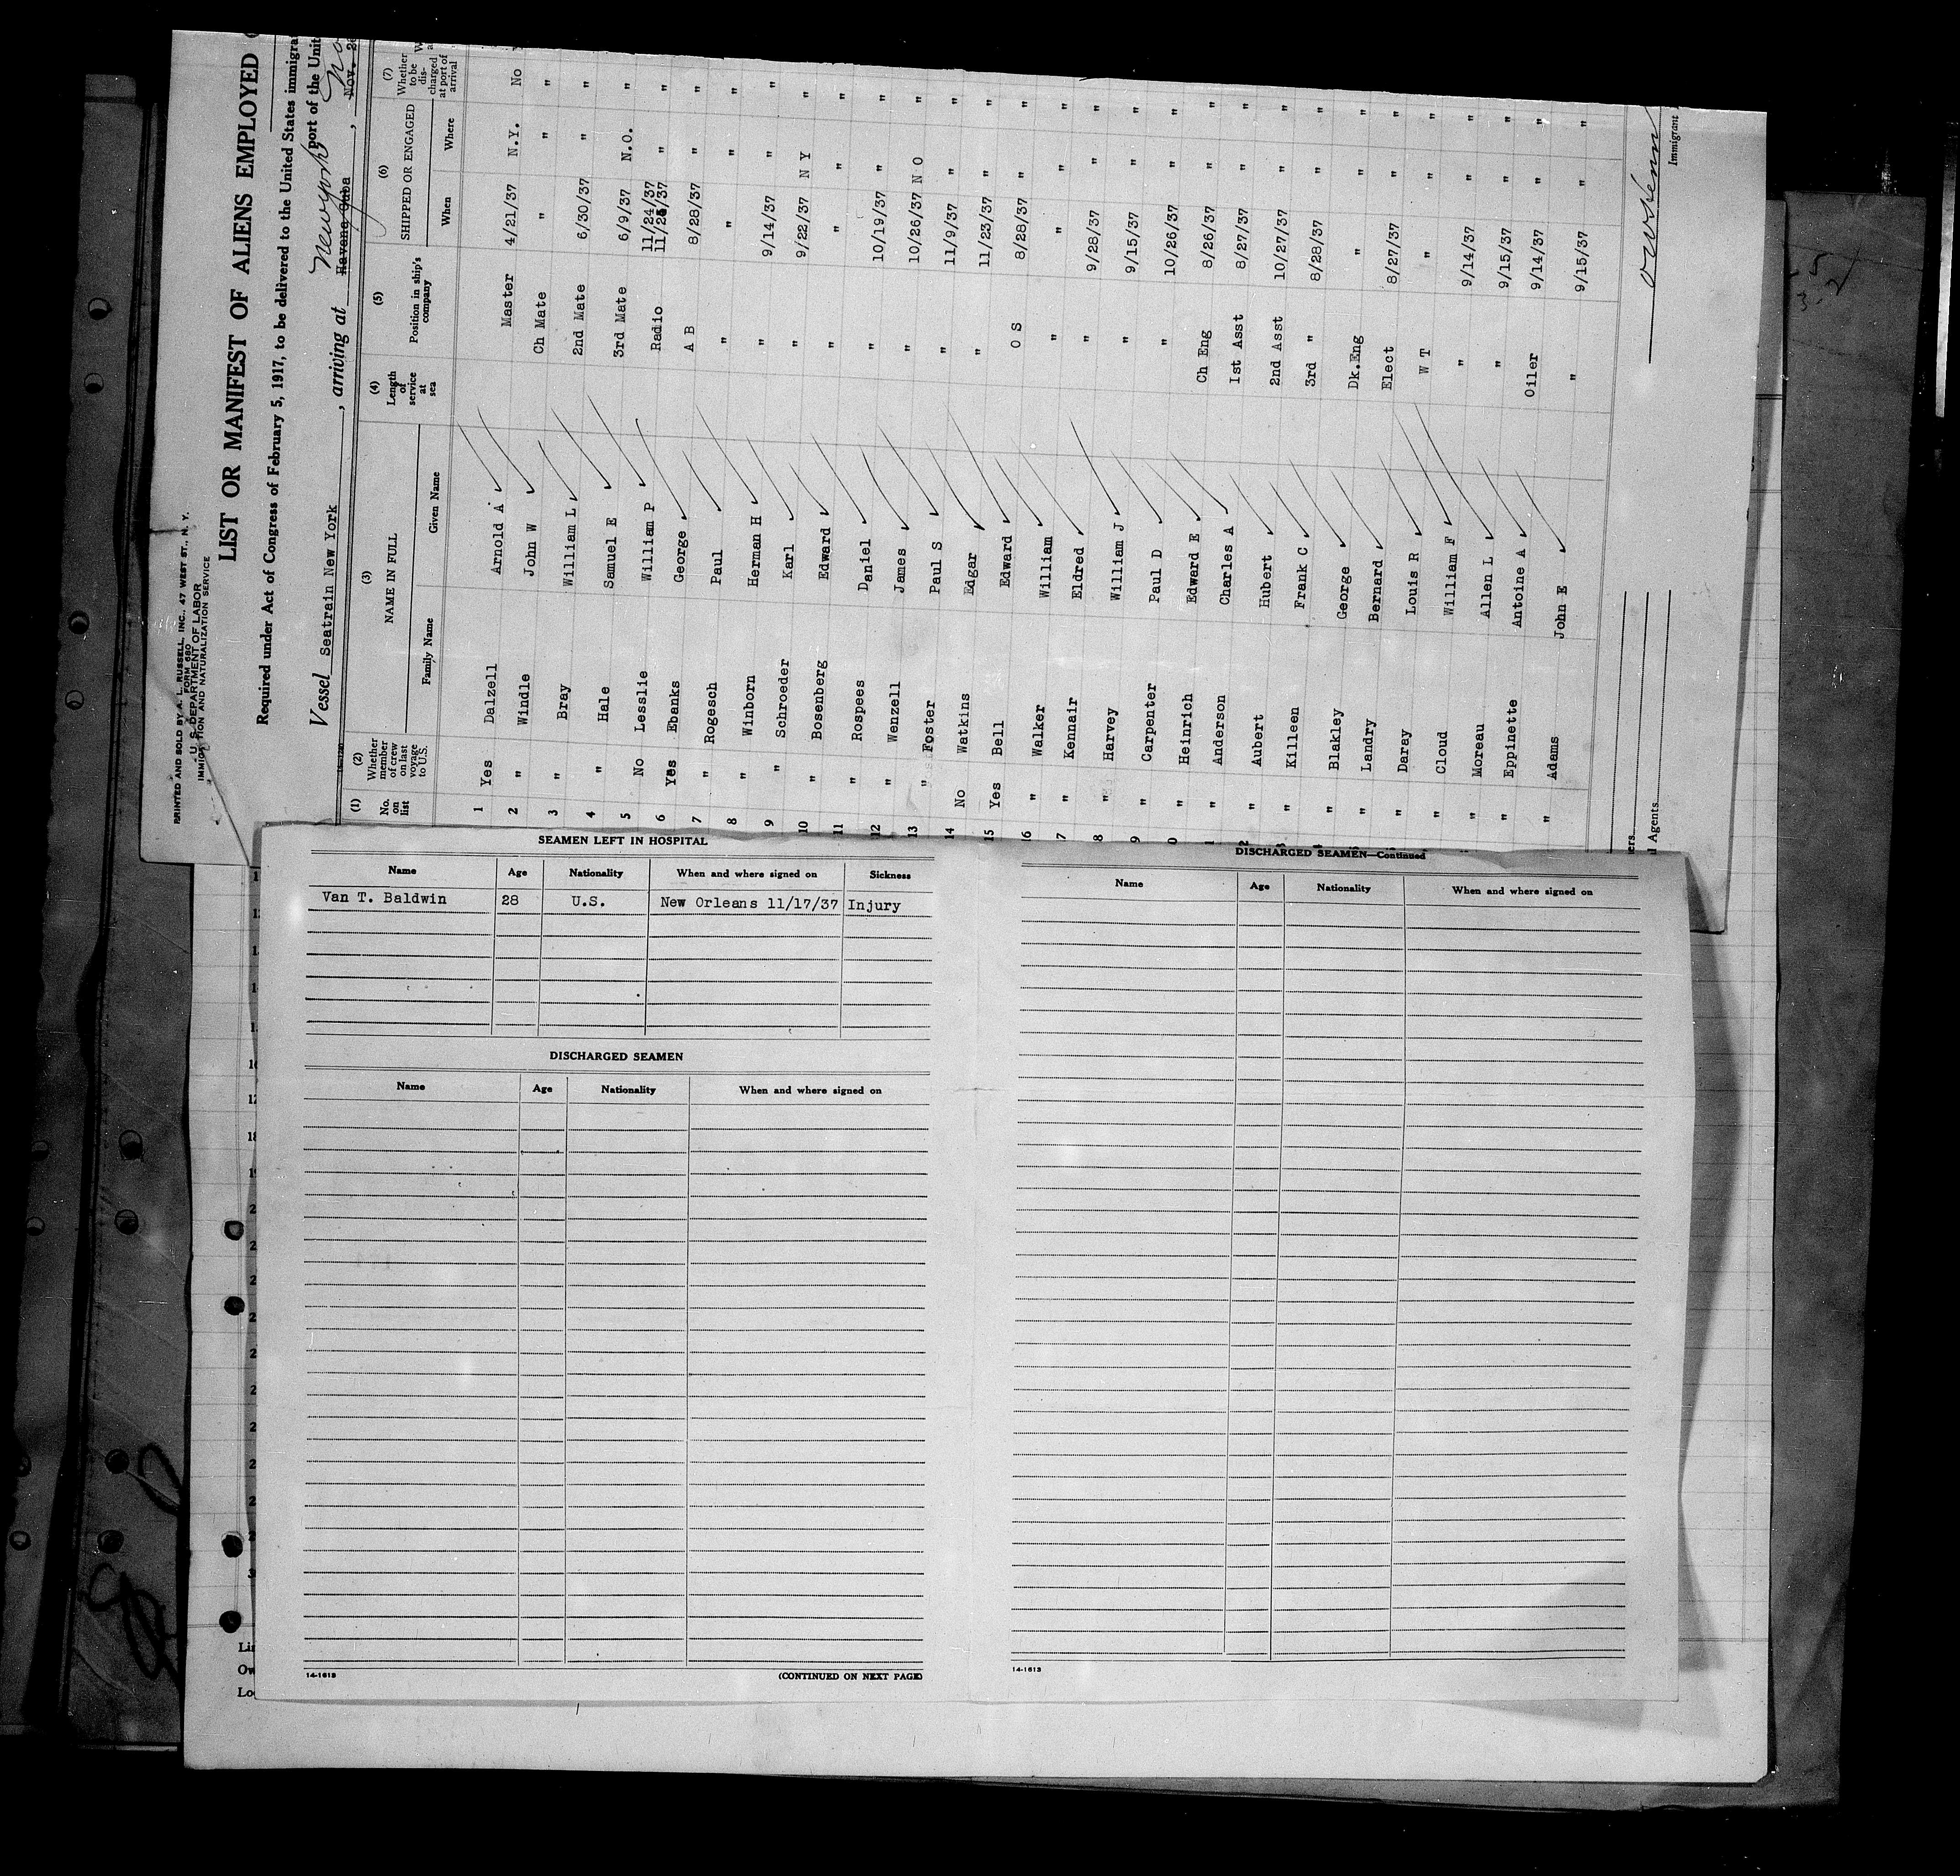 PRINTED AND SOLD BY A. L. RUSSELL, INC., 47 WEST ST., N. Y.
FORM 680
U. S. DEPARTMENT OF LABOR
IMMIGRATION AND NATURALIZATION SERVICE
LIST OR MANIFEST OF ALIENS EMPLOYED
Required under Act of Congress of February 5, 1917, to be delivered to the United States immigra
port of the Unit
Vessel Seatrain New York, arriving at New York
Havana Cuba, Nov. 28
(1) No. on list
(2) Whether member of crew on last voyage to U.S.
(3) NAME IN FULL
Family Name Given Name
(4) Length of service at sea
(5) Position in ship's company
(6) SHIPPED OR ENGAGED
When Where
(7) Whether to be discharged at port of arrival
1 Yes Dalzell Arnold A Master 4/21/37 N.Y. No
2 " Windle John W Ch Mate " " "
3 " Bray William L 2nd Mate 6/30/37 " "
4 " Hale Samuel E 3rd Mate 6/9/37 N.O. "
5 No Lesslie William P Radio 11/24/37 " "
6 Yes Ebanks George A B 8/28/37 " "
7 " Rogesch Paul " " " "
8 " Winborn Herman H " 9/14/37 " "
9 " Schroeder Karl " 9/22/37 N Y "
10 " Bosenberg Edward " " " "
11 " Rospees Daniel " 10/19/37 " "
12 " Wenzell James " 10/26/37 N O "
13 " Foster Paul S " 11/9/37 " "
14 No Watkins Edgar " 11/23/37 " "
15 Yes Bell Edward O S 8/28/37 " "
16 " Walker William " " " "
17 " Kennair Eldred " 9/28/37 " "
8 " Harvey William J " 9/15/37 " "
9 " Carpenter Paul D " 10/26/37 " "
0 " Heinrich Edward E Ch Eng 8/26/37 " "
1 " Anderson Charles A 1st Asst 8/27/37 " "
2 " Aubert Hubert 2nd Asst 10/27/37 " "
" Killeen Frank C 3rd " 8/28/37 " "
" Blakley George Dk.Eng " " "
" Landry Bernard Elect 8/27/37 " "
" Daray Louis R W T " " "
" Cloud William F " 9/14/37 " "
" Moreau Allen L " 9/15/37 " "
" Eppinette Antoine A Oiler 9/14/37 " "
" Adams John E " 9/15/37 " "
Agents
Immigrant
SEAMEN LEFT IN HOSPITAL
Name Age Nationality When and where signed on Sickness
Van T. Baldwin 28 U.S. New Orleans 11/17/37 Injury
DISCHARGED SEAMEN
Name Age Nationality When and where signed on
14-1613 (CONTINUED ON NEXT PAGE)
DISCHARGED SEAMEN—Continued
Name Age Nationality When and where signed on
14-1613